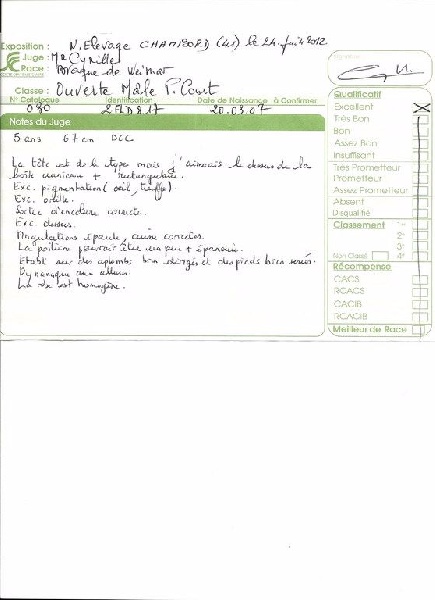 Exposition : N. Elevage CHAMBORD (41) le 24 juin 2012
Juge : Mr Cyrille
Race : Braque de Weimar
Classe : Ouverte Mâle P. Court
N° Catalogue Identification Date de Naissance à Confirmer
080 2ELD817 20.03.07
Notes du Juge
5 ans 67 cm DCC
La tête est de la type mais j'aimerais le dessus de la
boîte cranienne + rectangulaire.
Exc. pigmentation (oeil, truffe).
Exc. oreille.
Sortie d'encolure correcte.
Exc. dessus.
Angulations épaule, cuisse correctes.
La poitrine pourrait être un peu + épanouie.
Etabli sur des aplombs bien dirigés et des pieds bien serrés.
Dynamique aux allures.
La robe est homogène.
Signature
Qualificatif
Excellent
Très Bon
Bon
Assez Bon
Insuffisant
Très Prometteur
Prometteur
Assez Prometteur
Absent
Disqualifié
Classement 1er
2e
3e
Non Classé 4e
Récompense
CACS
RCACS
CACIB
RCACIB
Meilleur de Race